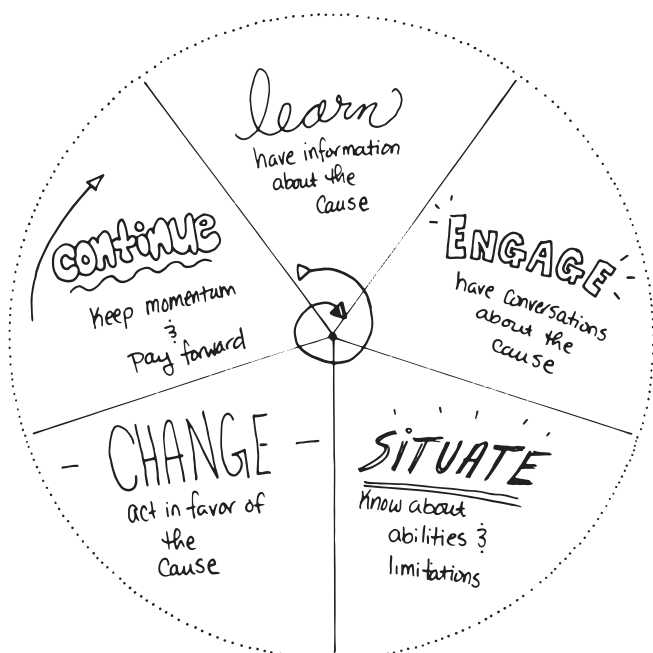 learn
have information
about the
cause
ENGAGE
have conversations
about the
cause
SiTUATE
Know about
abilities &
limitations
CHANGE
act in favor of
the
cause
continue
Keep momentum
&
pay forward